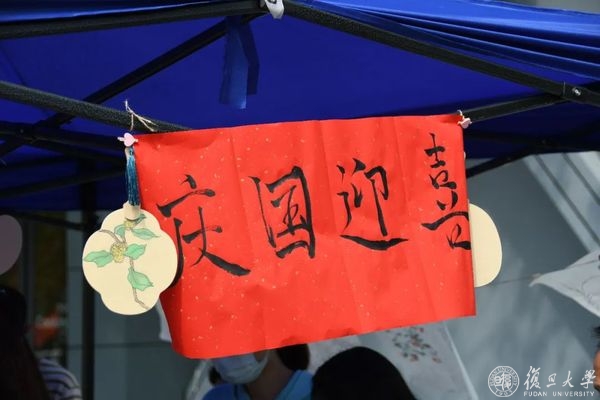 喜迎国庆
復旦大學
FUDAN UNIVERSITY